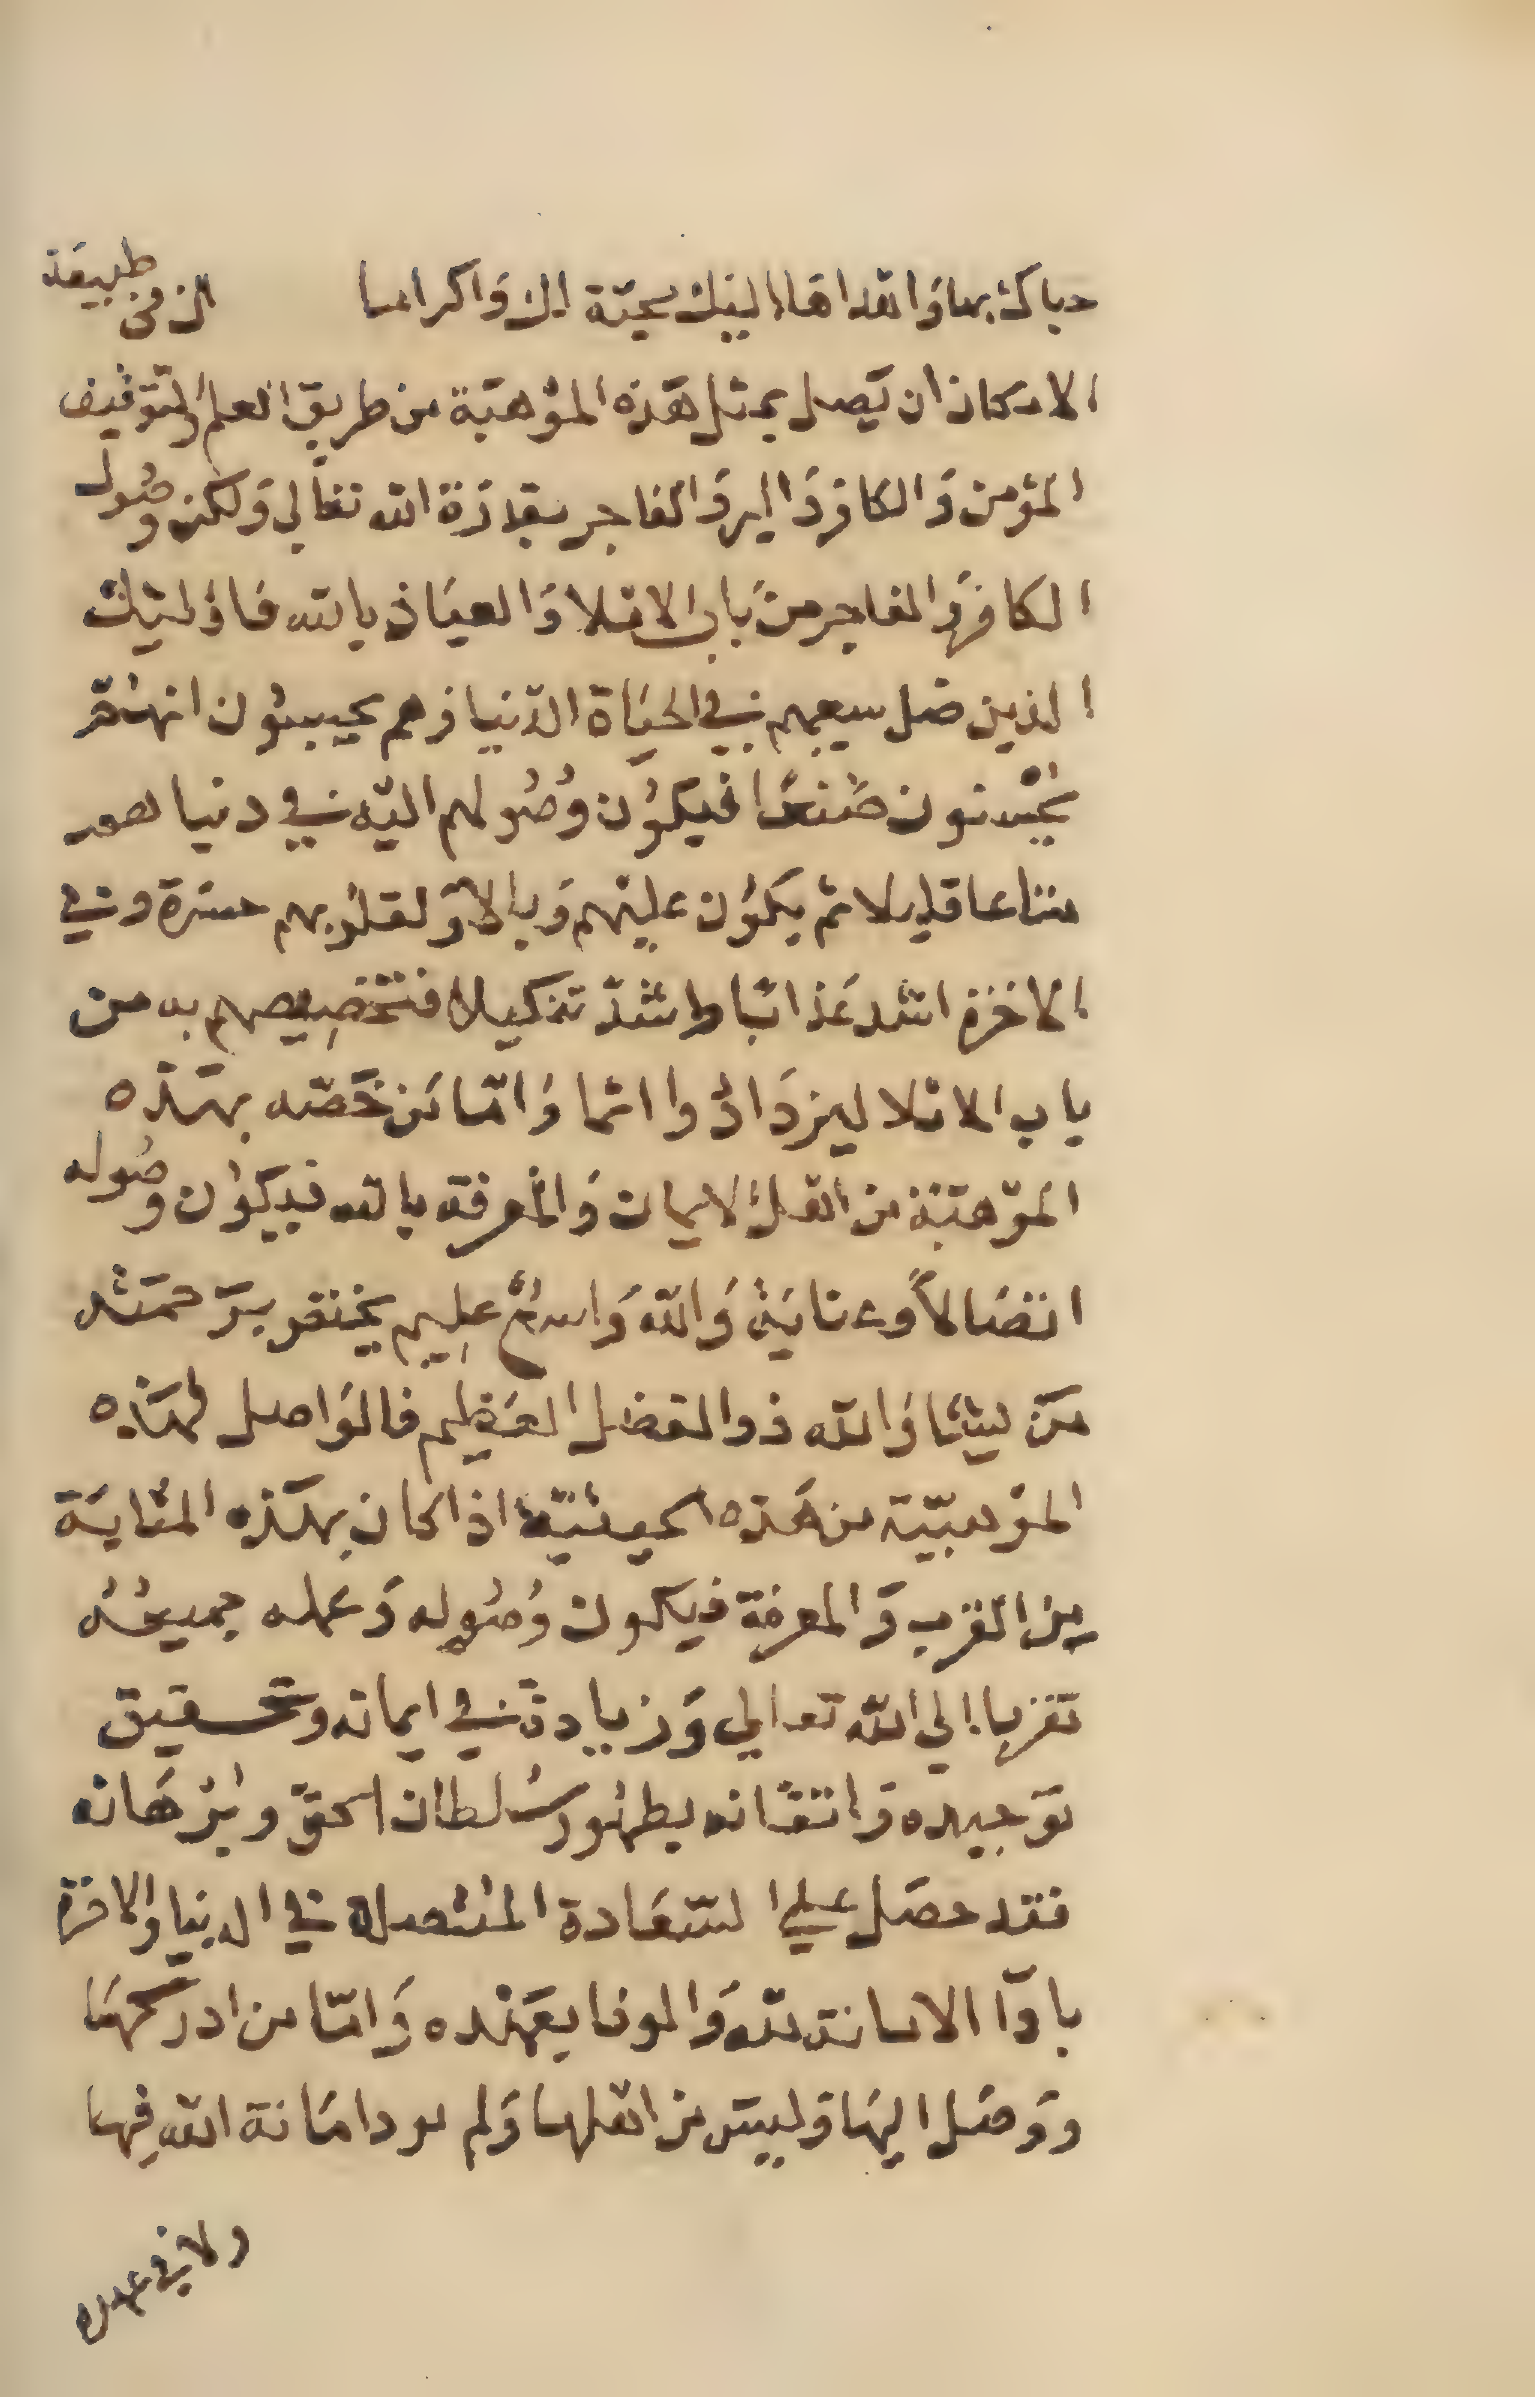 حباك بها وَاهداهَا اليك محبّة لك وَاكراما الذ في طبيعَة
الامكان ان يَصل بمثل هَذه الموْهبَة من طريق العلم وَالتّوقيف
المؤمن وَالكافر وَالبر وَالفاجر بقدرَة الله تعَالي وَلكن وصُول
الكافر وَالفاجر من بَاب الابتلا وَالعيَاذ بالله فاوْليْك
الذين ضل سعيهم في الحيَاة الدّنيا وَهم يحسبُون انهُمْ
يحْسنون صُنعًا فيكوُن وُصُولهم اليْه في دنياهم
متاعا قليلا ثم يكوُن عليْهم وَبالاً وَلقلوُبهم حسَرة وفي
الاخرَة اشد عَذابًا واشدّ تنكيلا فتخصِيصهم به من
باب الابتلا ليزدَادُوا اثما وَامّا مَن خَصّه بهَذه
الموْهبَة من اهل الايمان وَالمعرفة بالله فيكوُن وصُوله
افضَالاً وعنايَة وَالله وَاسعٌ عليم يختص برَحمَته
مَن يشَا وَالله ذو الفضل العَظيم فالوَاصل لهَذه
الموْهبَة من هَذه الحيثيّة اذا كان بهَذه المثابَة
من القرب وَالمعرفة فيكون وُصُوله وَعمله جميعُه
تقربا الي الله تعالي وَزيادة في ايمانه وتحقيق
توَحيده وَاتقانه بظهُور سُلطان الحقّ وبُرْهَانه
فقد حصَل علي السّعَادة المتصلة في الدنيا والاخرَة
بادَآ الامانة لله وَالوفا بعَهْده وَامّا من ادرَكهَا
ووَصَل اليهَا وَليسَ من اهلها وَلم يود امَانة الله فيها
ولا في عهده